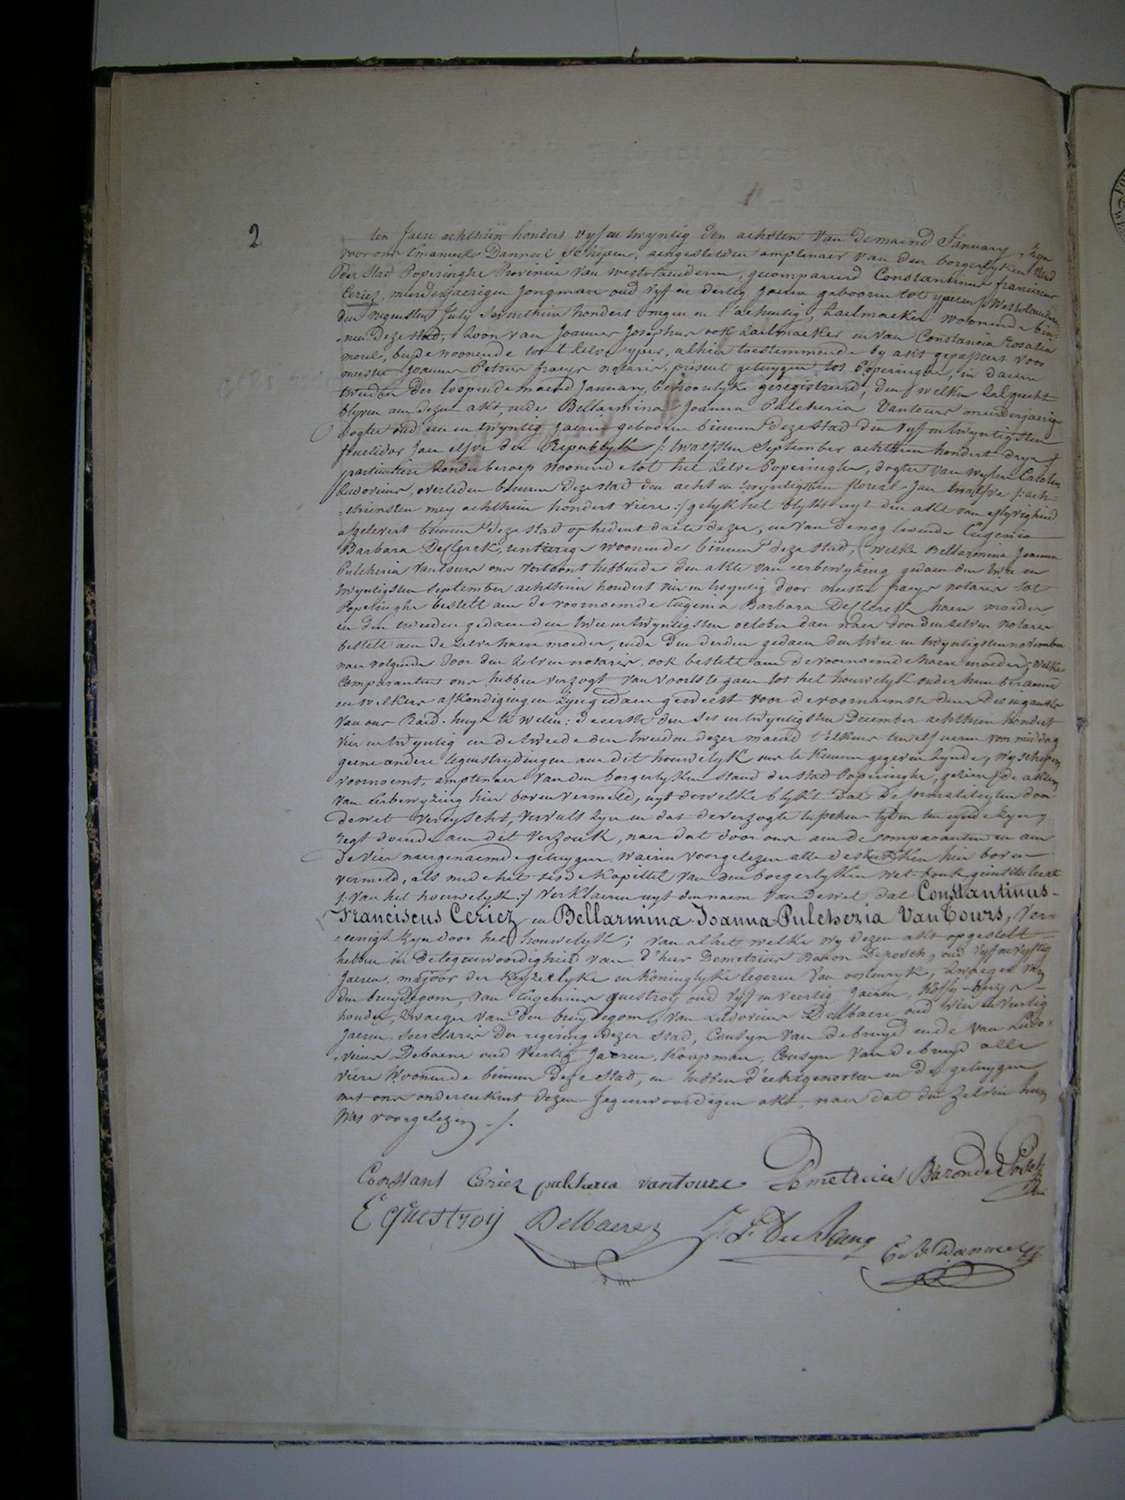 2
ten Jaere achthien hondert vyf en twyntig den achsten van de maend January
voor ons Emanuel Danneel Schepen, aengestelden amptenaer van den borgerlyken stand
der Stad Poperinghe Provincie van westvlaenderen, gecompareerd Constantinus franciscus
Ceriez, meerderjaerigen Jongman oud vyf en dertig Jaeren geboren tot yperen Westvlaenderen
den negensten July seventhien hondert negen en t'achentig, Zaelmaeker woonende bin-
nen deze stad, Zoon van Joannes Josephus ook Zaelmaeker en van Constancia Rosalia
beyde woonende tot t'zelve yper, alhier toestemmende by akt gepasseert voor
meester Joannes Petrus fraeys notaris, present getuygen tot Poperinghe, in daeten
tweeden der loopende maend January, behoorlyke geregistreerd, den welken zal gehecht
blyven aen dezen akt, ende Bellarmina Joanna Pulcheria Vantours meerderjaerige
dogter oud een en twyntig Jaeren geboren binnen deze stad den vyf en twyntigsten
fructidor Jaer elfve der Republyk /: twalfsten September achthien hondert drye :/
particuliere zonder beroep woonende tot het zelve Poperinghe, dogter van wylen Carolus
Ludovicus, overleden binnen deze stad den acht en twyntigsten floreal Jaer twaelfve /: ach-
thiensten mey achthien hondert viere :/ gelyk het blykt uyt den akt van aflyvigheid
afgelevert binnen deze stad op heden daete dezer, en van de nog levende Eugenia
Barbara DeClerck, rentierige woonende binnen deze stad, welke Bellarmina Joanna
Pulcheria Vantours ons vertoont hebbende den akte van eerbewyzing gedaen den twee en
twyntigsten September achthien hondert vier en twyntig door meester fraeys notaris tot
Poperinghe bestelt aen de voornoemde Eugenia Barbara DeClerck haere moeder
en den tweeden gedaen den twee en twyntigsten october daer naer door den zelven notaris
bestelt aen de zelve haere moeder, ende den derden gedaen den twee en twyntigsten november
naer volgende door den zelven notaris ook bestelt aen de voornoemde haere moeder, welke
comparanten ons hebben verzogt van voorts te gaen tot het houwelyk onder hun beraemd
en welkers afkondigingen zyn gedaen geweest voor de voornaemste deure des ingank
van ons Raed-huys te weten: de eerste den ses en twyntigsten December achthien hondert
vier en twyntig en de tweede den tweeden dezer maend t'elkens ten elf ueren voor middag
geene andere tegenstrydingen aen dit houwelyk ons te kennen gegeven zynde, wy schepen
voornoemt, amptenaer van den borgerlyken stand der stad Poperinghe, gezien de akten
van Eerbewyzing hier boven vermeld, uyt dewelke blykt dat de formaliteyten door
de wet vereyscht, vervult zyn en dat de verzogte
regt doende aen dit verzoek, naer dat door ons aen de comparanten en aen
de vier naergenaemde getuygen waeren voorgelezen alle de stukken hier boven
vermeld, als mede het sesde Kapittel van den borgerlyken wet-bouk geintituleert
/: van het houwelyk :/ verklaeren uyt den naem van de wet, dat Constantinus-
Franciscus Ceriez en Bellarmina Joanna Pulcheria VanTours, ver-
eenigt zyn door het houwelyk; van al het welke wy dezen akt opgestelt
hebben in de tegenwoordigheid van d'heer Demetrius Baron Deposch, oud vyf en vyftig
Jaeren, majoor der Keyzerlyke en Koninglyke legeren van oostenryk, Zwaeger van
den bruydegom, van Eugenius Questroy oud vyf en veertig Jaeren, Koffy-huys-
houder, Zwaeger van den bruydegom, van Ludovicus Delbaere oud vier en veertig
Jaeren, Secretaris der regering dezer stad, Cousyn van de bruyd ende van Ludo-
vicus Debaene oud veertig Jaeren, Koopman, Cousyn van de bruyd alle
viere woonende binnen deze stad, en hebben d'echtgenooten en de getuygen
met ons onderteekent dezen Jegenwoordigen akt, naer dat den zelven hun
was voorgelezen ./.
Constant Ceriez pulcheria vantours Demetrius Baron de Posch
E Questroy Delbaere
E. Danneel